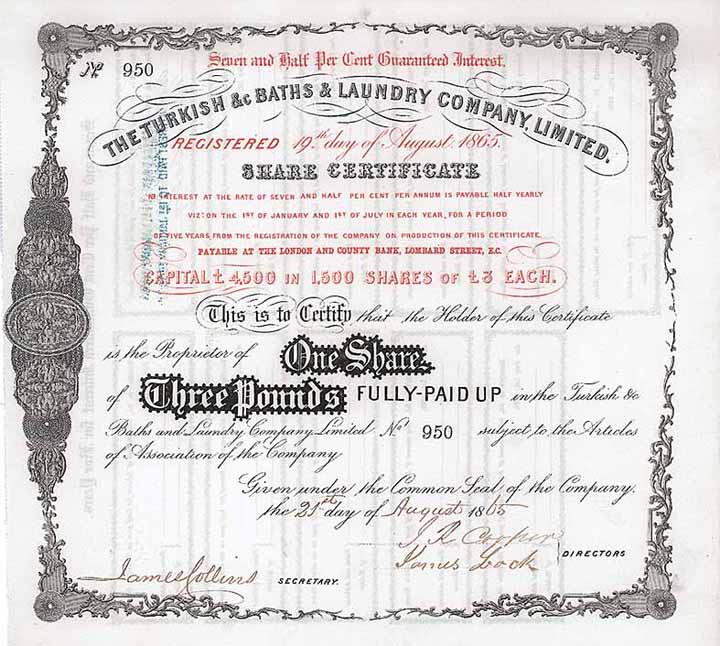 Nº 950
Seven and Half Per Cent Guaranteed Interest.
THE TURKISH &c BATHS & LAUNDRY COMPANY, LIMITED.
REGISTERED 19th day of August 1865.
SHARE CERTIFICATE
INTEREST AT THE RATE OF SEVEN AND HALF PER CENT PER ANNUM IS PAYABLE HALF YEARLY
VIZ: ON THE 1ST OF JANUARY AND 1ST OF JULY IN EACH YEAR, FOR A PERIOD
OF FIVE YEARS FROM THE REGISTRATION OF THE COMPANY ON PRODUCTION OF THIS CERTIFICATE.
PAYABLE AT THE LONDON AND COUNTY BANK, LOMBARD STREET, E.C.
CAPITAL £ 4,500 IN 1,500 SHARES OF £3 EACH.
This is to Certify that the Holder of this Certificate
is the Proprietor of One Share.
of Three Pounds FULLY-PAID UP in the Turkish &c
Baths and Laundry Company Limited Nº 950 subject to the Articles
of Association of the Company
Given under the Common Seal of the Company.
the 21st day of August 1865
J. R. Cooper
James Lock
DIRECTORS
James Collins SECRETARY.